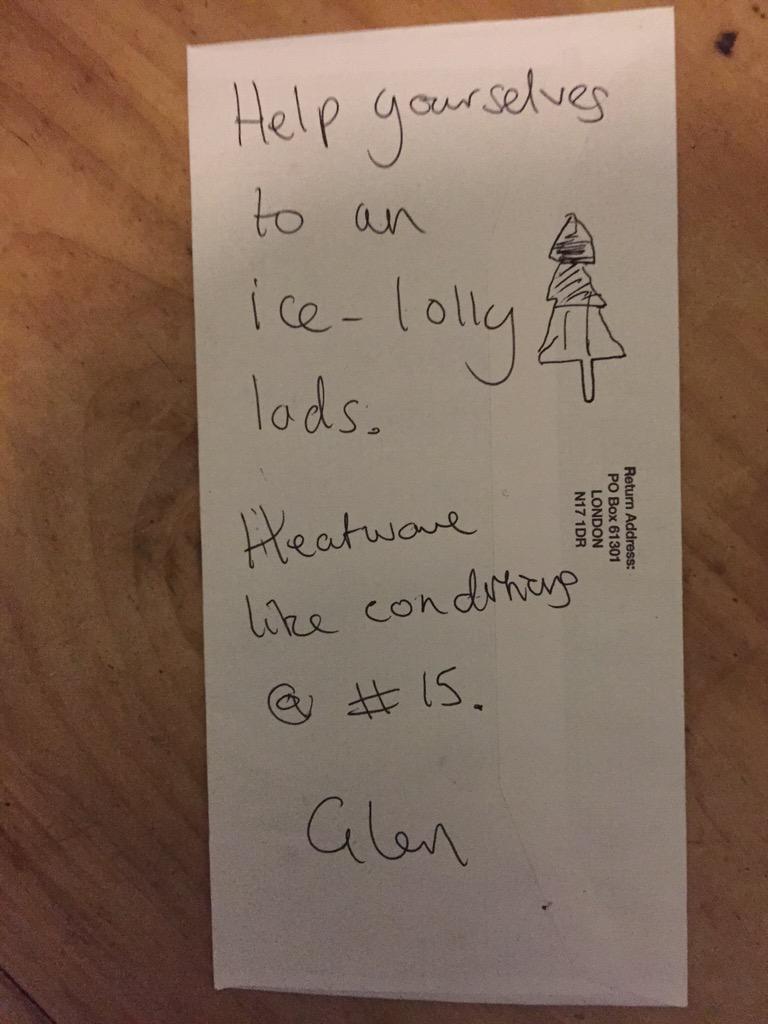 Help yourselves
to an
ice-lolly
lads.
Heatwave
like conditions
@ #15.
Glen
Return Address:
PO Box 61301
LONDON
N17 1DR